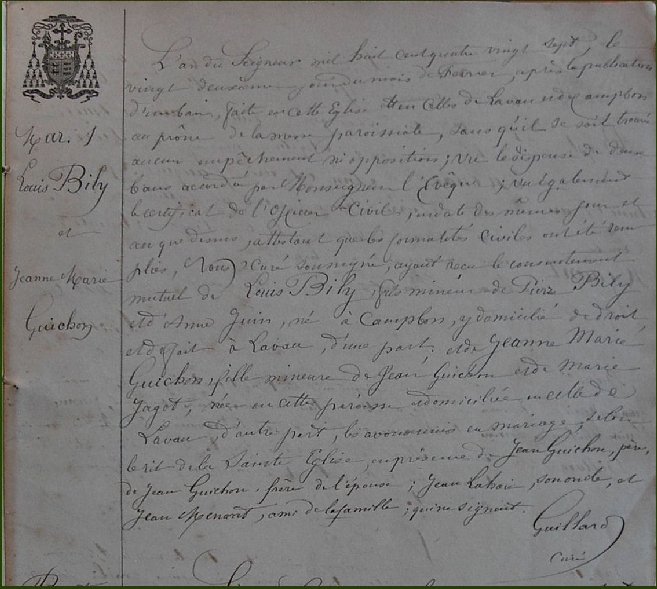 Mar. 1
Louis Bily
et
Jeanne Marie
Guichon
L'an du Seigneur mil huit cent quatre vingt sept, le
vingt deuxième jour du mois de Février, après la publication
d'un ban, faite en cette Eglise et en celles de Lavau et de Campbon
au prône de la messe paroissiale, sans qu'il se soit trouvé
aucun empêchement ni opposition; vu la dispense de deux
bans accordée par Monseigneur l'Evêque; vu également
le certificat de l'officier Civil, en date des mêmes jour et
an que dessus, attestant que les formalités civiles ont été rem
plies, Nous Curé soussigné, ayant reçu le consentement
mutuel de Louis Bily, fils mineur de Pierre Bily
et d'Anne Juin, né à Campbon, y domicilié de droit
et de fait à Lavau, d'une part, et de Jeanne Marie
Guichon, fille mineure de Jean Guichon et de Marie
Jagot, née en cette paroisse domiciliée en celle de
Lavau, d'autre part, les avons unis en mariage, selon
le rit de la Sainte Eglise en présence de Jean Guichon, père,
de Jean Guichon, frère de l'épouse; Jean Lahaie, son oncle, et
Jean Menant, ami de la famille; qui ne signent.
Guillard
curé